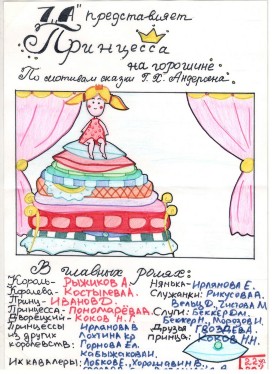 7 "А" представляет
Принцесса
на горошине
По мотивам сказки Г. Х. Андерсена.
В главных ролях:
Король- РЫЖИКОВ А.
Королева- КОСТЫЛЕВА А.
Принц- ИВАНОВ Д.
Принцесса- ПОНОМАРЁВА А.
Дворецкий- КОКОВ Н.
Принцессы
из других
королевств:
ИРЛАНОВА В
ЛОКТИНА Кр
ГОРНОВА Ел.
КАБЫЖАКОВА И.
Их кавалеры:
Няньки- ИРЛАНОВА Е.
Служанки: РИКУСОВА А.
ВЕЛЬЦ О., ЧИСТОВА М
Слуги: БЕККЕР ОМ.
БЕККЕР Н., МОРОЗОВ И.
Друзья
принца:
ГВОЗДЕВА.
КОКОВ Н.Н.
22